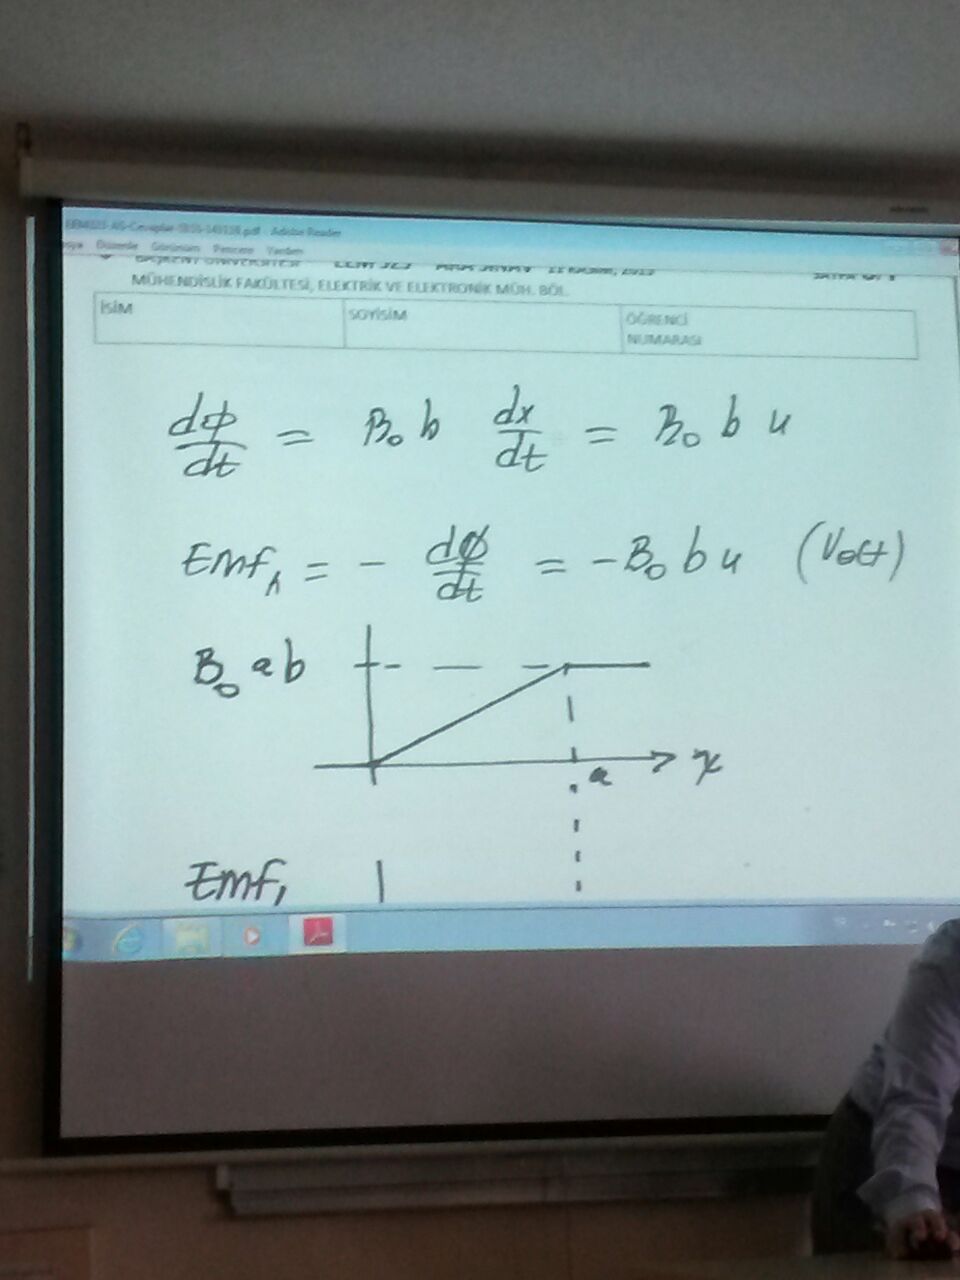 Adobe Reader
Düzenle Görünüm Pencere Yardım
BAŞKENT ÜNİVERSİTESİ ARA SINAV
MÜHENDİSLİK FAKÜLTESİ, ELEKTRİK VE ELEKTRONİK MÜH. BÖL.
İSİM SOYİSİM ÖĞRENCİ
NUMARASI
dφ/dt = B₀ b dx/dt = B₀ b u
Emf₁ = - dφ/dt = -B₀ b u (Volt)
B₀ a b
a x
Emf₁